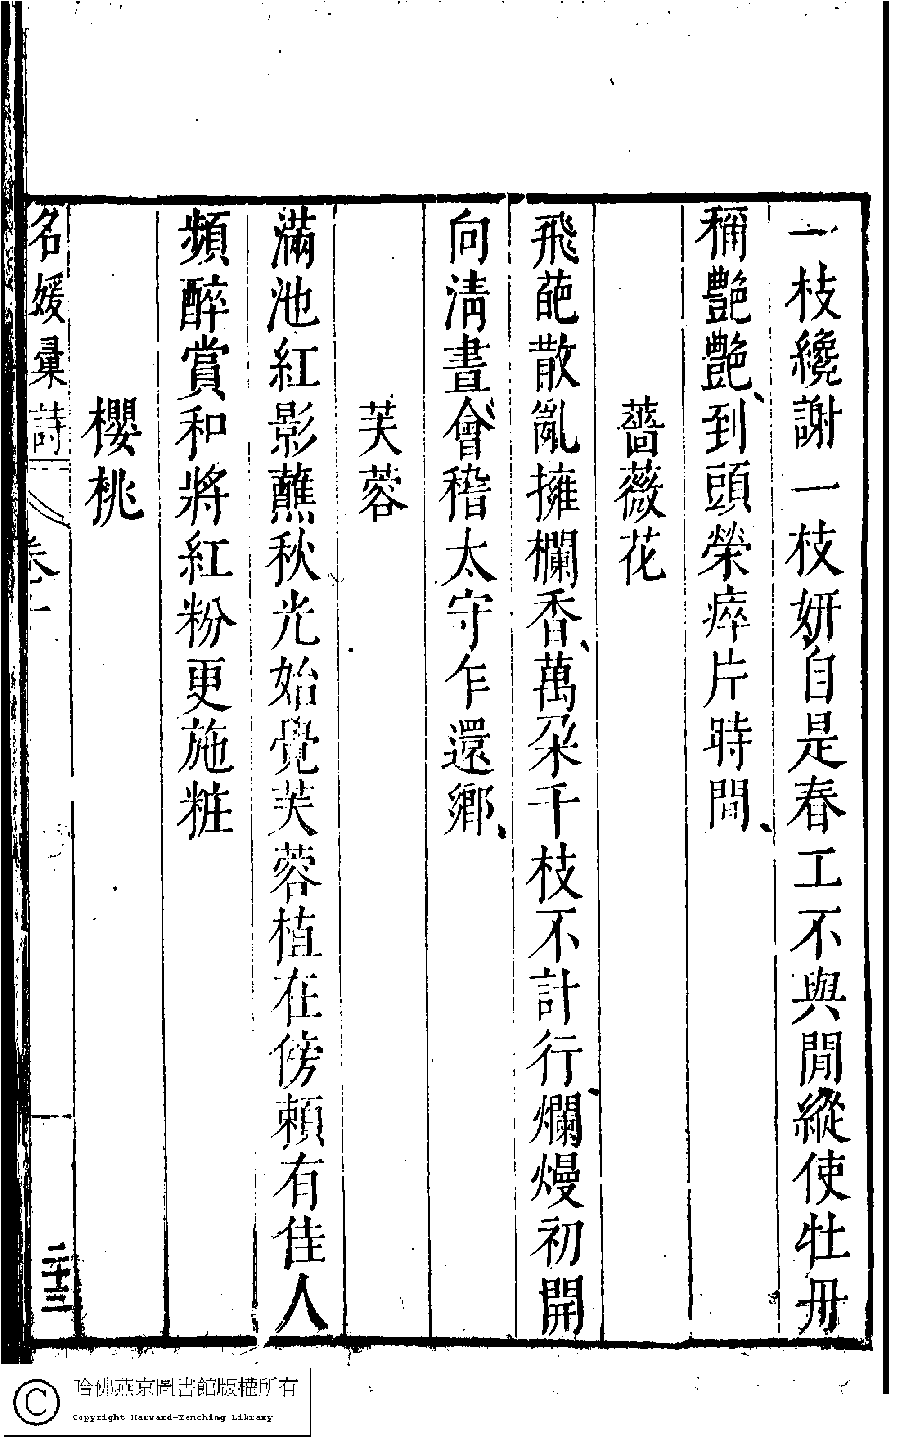 一枝纔謝一枝妍自是春工不與閒縱使牡丹
稱艷艷到頭榮瘁片時間
薔薇花
飛葩散亂擁欄香萬朶千枝不計行爛熳初開
向清晝會稽太守乍還鄉
芙蓉
滿池紅影蘸秋光始覺芙蓉植在傍頼有佳人
頻醉賞和將紅粉更施粧
櫻桃
名媛彙詩 卷十 二十三
哈佛燕京圖書館版權所有
Copyright Harvard-Yenching Library